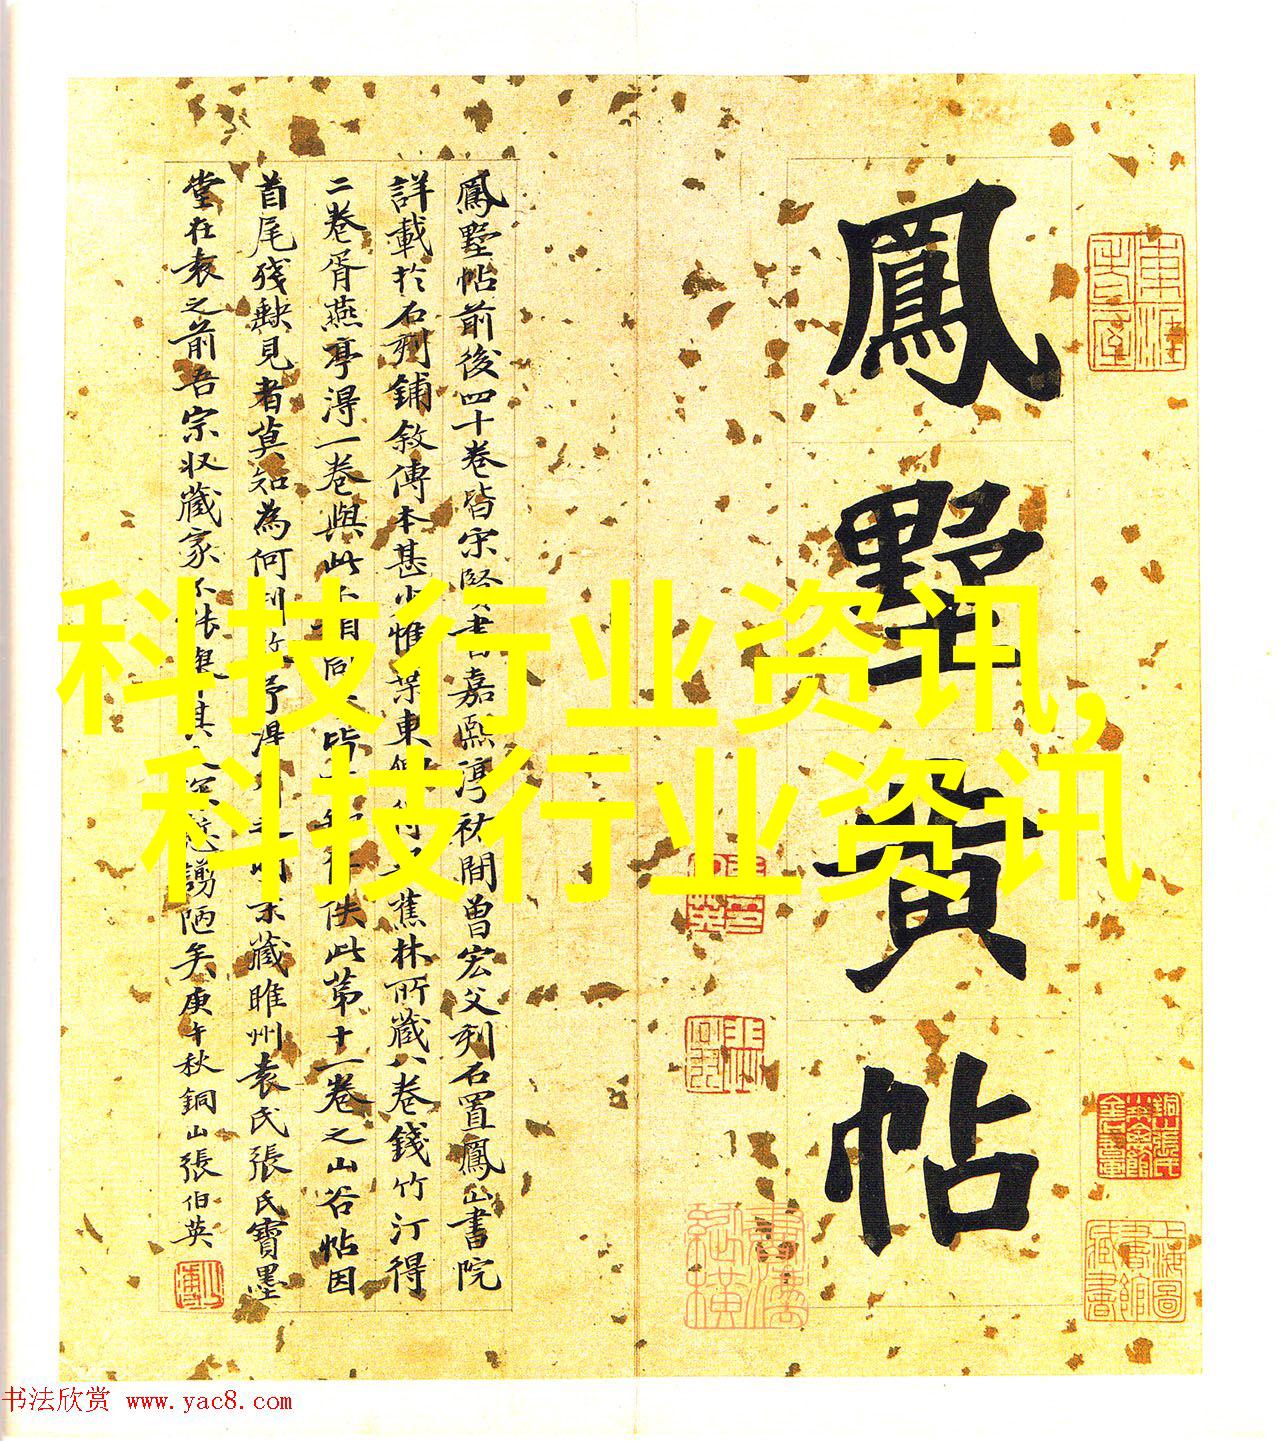 鳳墅殘帖
鳳墅帖前後四十卷皆宋賢書嘉熙淳祐間曾宏父刻石置鳳山書院
詳載於石刻鋪敘傳本甚少惟葉東卿得 蕉林所藏八卷錢竹汀得
二卷胥燕亭得一卷與此 佚此第十一卷之山谷帖因
首尾殘缺見者莫知為何刻 予得 藏睢州袁氏張氏寶墨
堂在袁之前吾宗収藏家不 其 謭陋矣庚午秋銅山張伯英
科技行业资讯,
科技行业资讯
上海圖書館藏書
书法欣赏 www.yac8.com